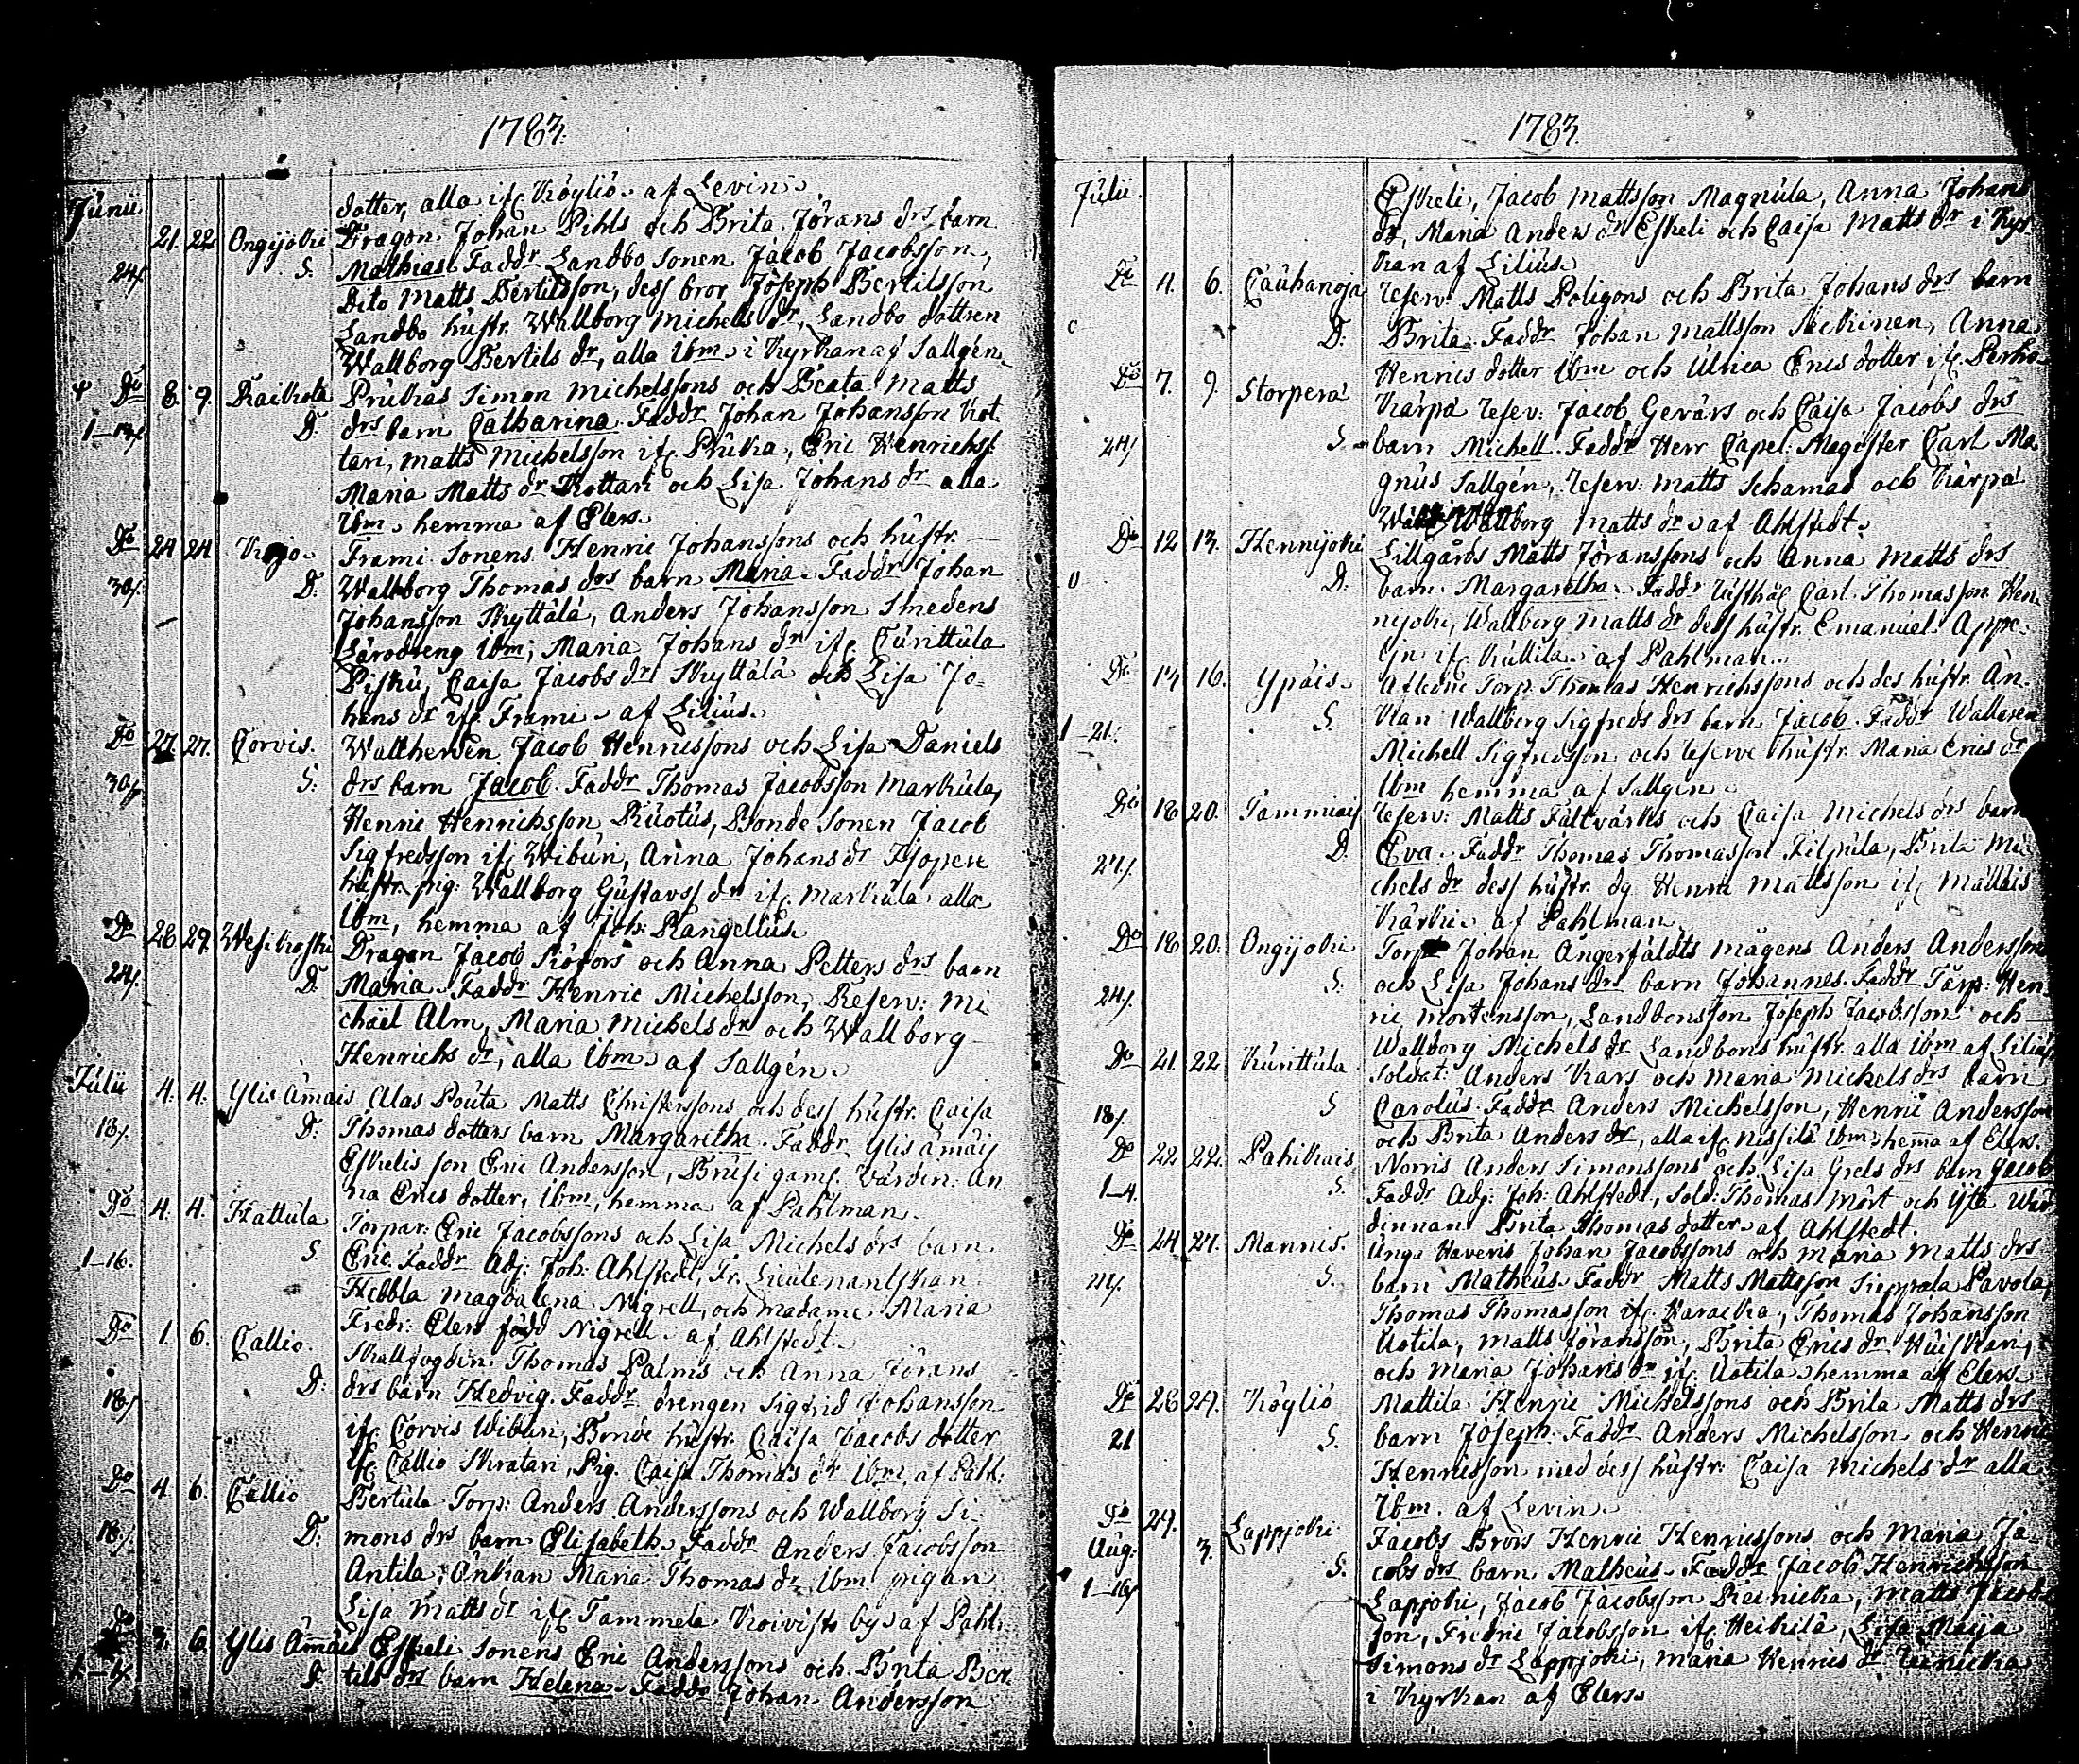 1783.
Junii
dotter, alla ifr. Kiöyliö. af Levin.
21. 22 Ongijoki Dragon. Johan Pihls och Brita Jörans drs barn
24/. S. Mathias. Faddr Landbo Sonen Jacob Jacobsson,
dito Matts Bertilsson, dess bror Joseph Bertilsson
Landbo hustr. Wallborg Michels dr, Landbo dottren
Wallborg Bertils dr, alla ibm. i Kyrkan af Sallgén.
Do 8. 9. Raikola Prukas Simon Michelssons och Beata Matts
D. drs barn Catharina. Faddr Johan Johansson Kot
tari, Matts Michelsson ifr. Pruka, Eric Henrichs.
Maria Matts dr Kottari och Lisa Johans dr alla
ibm. hemma af Elers.
Do 24 24. Frami Sonens Henric Johanssons och hustr.
30/. D. Wallborg Thomas drs barn Maria. Faddr Johan
Johansson Kyttälä, Anders Johansson Smedens
Lärodreng ibm, Maria Johans dr ifr. Turittula
Pisku, Caisa Jacobs dr Kyttälä och Lisa Jo-
hans dr ifr. Frami. af Lilius.
Do 27. 27. Corvis. Jacob Henricssons och Lisa Daniels
30/. S. drs barn Jacob. Faddr Thomas Jacobsson Markula,
Henric Henrichsson Ruotus, Bonde Sonen Jacob
Sigfredsson ifr. Wiburi, Anna Johans dr
hustr. pig. Wallborg Gustavs dr ifr. Markula alla
ibm, hemma af Joh. Rangellius.
Do 28 29. Wesikoski Dragon Jacob Siöfors och Anna Petters drs barn
24/. D. Maria. Faddr Henric Michelsson, Reserv: Mi
chäel Alm, Maria Michels dr och Wallborg
Henrichs dr, alla ibm. af Sallgén.
Julii 4. 4. Ylis Ämäis Alas Pouta Matts Christerssons och dess hustr. Caisa
18/. D. Thomas dotters barn Margaretha. Faddr Ylis ämäis
Eskelis son Eric Andersson, Värdin. An
na Erics dotter, ibm, hemma af Pahlman.
Do 4. 4. Hattula Torpar: Eric Jacobssons och Lisa Michels drs barn
1-16. S. Eric. Faddr Adj: Joh: Ahlstedt, Fr. Lieutenantskan
Hebbla Magdalena Nigrell, och madame Maria
Fredr: Elers född Nigrell. af Ahlstedt.
Do 1. 6. Callio. Thomas Palms och Anna Jörans
18/. D. drs barn Hedvig. Faddr drengen Sigfrid Johansson
ifr. Corvis Wiburi, Bonde hustr. Caisa Jacobs dotter
ifr. Callio Skratari, Pig. Caisa Thomas dr ibm. af Pahl:
Do 4. 6. Callio Bertula Torp: Anders Anderssons och Wallborg Si-
18/. D. mons drs barn Elisabeth. Faddr Anders Jacobsson
Antila, Änkan Maria Thomas dr ibm pigan
Lisa Matts dr ifr. Tammela Koivisto by. af Pahl:
Do 3. 6. Ylis Ämäis Eskeli Sonens Eric Anderssons och Brita Ber-
D. tils drs barn Helena. Faddr Johan Andersson
1783.
Julii.
Eskeli, Jacob Mattsson Magnula, Anna Johans
dr, Maria Anders dr Eskeli och Caisa Matts dr i Kyr
kan af Lilius.
Do 4. 6. Cauhanoja Reserv: Matts Poligons och Brita Johans drs barn
D: Brita. Faddr Johan Mattsson, Anna
Henrics dotter ibm och Ulrica Erics dotter ifr.
Do 7. 9. Storperä Kärpä Reserv: Jacob Gevärs och Caisa Jacobs drs
24/. S. barn Michell. Faddr Herr Capel. Magister Carl Ma
gnus Sallgén, Reserv: Matts och Kärpä
Wallborg Matts dr. af Ahlstedt.
Do 12 13. Hennijoki Lillgårds Matts Jöranssons och Anna Matts drs
D. barn. Margaretha. Faddr Carl Thomasson Hen
nijoki, Wallborg Matts dr dess hustr. Emanuel
ifr. Kuttila. af Pahlman.
Do 14 16. Ypäis. Afledne Torp. Thomas Henrichssons och des hustr. An-
1-21. S. kan Wallborg Sigfreds drs barn Jacob. Faddr
Michell Sigfredsson och Reserve hustr. Maria Erics dr
ibm hemma af Sallgén.
Do 18 20. Tammiais Reserv: Matts Fältvärks och Caisa Michels drs barn
27/. D. Eva. Faddr Thomas Thomasson Filpula, Brita Mi
chels dr dess hustr. dg Henric Mattsson ifr.
Kärki. af Pahlman.
Do 18 20. Ongijoki Torp Johan Ångerfäldts mågens Anders Anderssons
24/. S. och Lisa Johans drs barn Johannes. Faddr Torp: Hen
ric Mortensson, Landbonsson Joseph Jacobsson och
Wallborg Michels dr Landbons hustr. alla ibm af Lilius.
Do 21. 22 Kurittula Soldat: Anders Kars och Maria Michels drs barn
18/. S Carolus. Faddr Anders Michelsson, Henric Andersson
och Brita Anders dr, alla ifr. Nissilä ibm, hemma af Elers.
Do 22 22. Pahikais Norris Anders Simonssons och Lisa Grels drs barn Jacob
1-4. S. Faddr Adj: Joh: Ahlstedt, Sold: Thomas Mört och Ylä Wär
dinnan Brita Thomas dotter. af Ahlstedt.
Do 24 27. Mannis. Unga Haveris Johan Jacobssons och Maria Matts drs
S. barn Matheus. Faddr Matts Mattsson Sieppala Pavola,
Thomas Thomasson ifr. Karaika, Thomas Johansson
Uotila, Matts Jöransson, Brita Erics dr Huiskari,
och Maria Johans dr ifr. Uotila. hemma af Elers.
Do 28 29. Kiöyliö Mattila Henric Michelssons och Brita Matts drs
21 S. barn Joseph. Faddr Anders Michelsson och Henric
Henricsson med dess hustr. Caisa Michels dr alla
ibm. af Levin.
Do 29. Lappjoki Jacobs Brors Henric Henricssons och Maria Ja-
Aug: 3. S. cobs drs barn Matheus. Faddr Jacob Henrichsson
1-16/ Lapjoki, Jacob Jacobsson Reinicka, Matts Jacobs
son, Fredric Jacobsson ifr. Heikilä, Lisa Maija
Simons dr Lappjoki, Maria Henrics dr Reinicka
i Kyrkan af Elers.